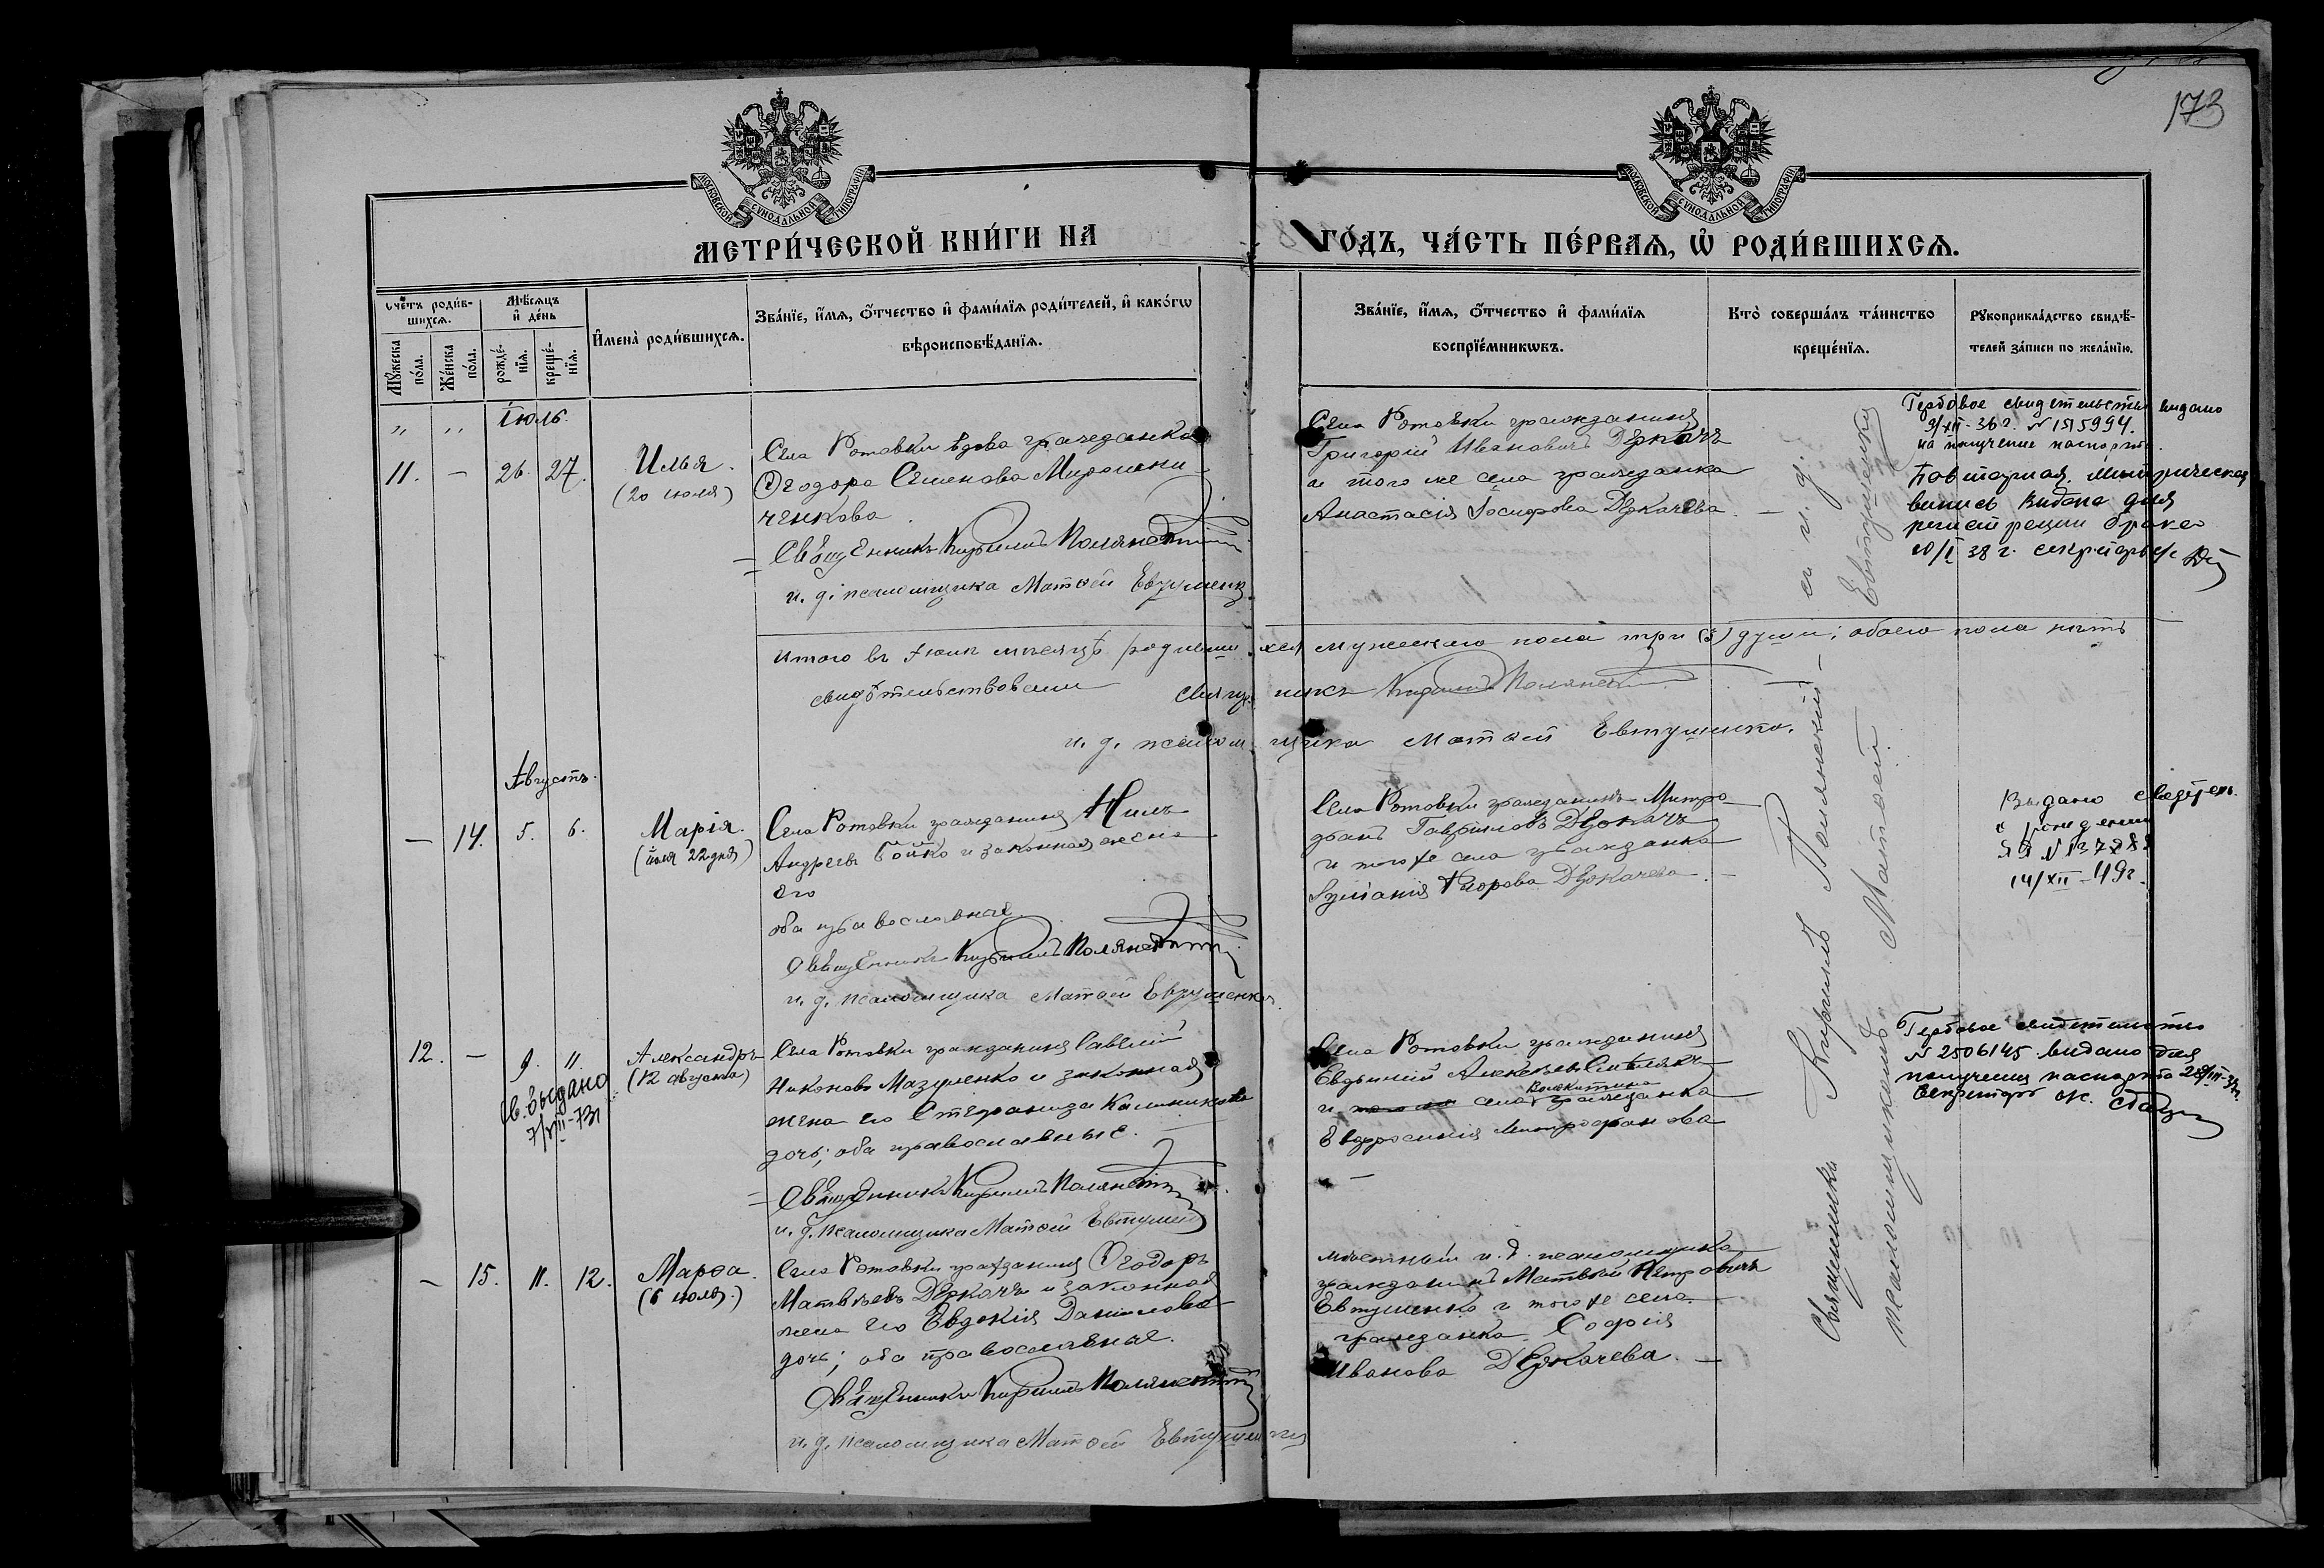 173
МОСКОВСКОЙ СУНОДАЛЬНОЙ ТИПОГРАФІИ
МОСКОВСКОЙ СУНОДАЛЬНОЙ ТИПОГРАФІИ
МЕТРИ́ЧЕСКОЙ КНИ́ГИ НА
ГО́ДЪ, ЧА́СТЬ ПЕ́РВАЯ, Ѡ РОДИ́ВШИХСЯ.
Счётъ роди́в-
шихся.
Мѣ́сяцъ
и де́нь
Имена̀ роди́вшихся.
Зва́нїе, и́мя, о́тчество и фами́лїя роди́телей, и како́гѡ
вѣроисповѣ́данїя.
Зва́нїе, и́мя, о́тчество и фами́лїя
воспрїе́мникѡвъ.
Кто̀ соверша́лъ та́инство
креще́нїя.
Рукоприкла́дство свидѣ́-
телей за́писи по жела́нїю.
Му́жеска
по́ла.
Же́нска
по́ла.
рожде́-
нїя.
креще́-
нїя.
" " Іюль.
11. — 26. 27.
Илья.
(20 іюля)
Села Ротовки вдова гражданка
Ѳеодора Семенова Мирошни-
ченкова.
Священникъ Кириллъ Полянскій
и. д. псаломщика Матѳей Евтушенк
Села Ротовки гражданинъ
Григорій Ивановичъ Деркачъ
и того же села гражданка
Анастасія Іосифова Деркачева. —
Гербовое свидетельство видано
9/XII-36 г. N 1515994.
на получение паспорта.
Повторная метрическая
випись видана для
регистрации брака
10/I 38 г. секретарь с/с
Итого въ Іюлѣ мѣсяцѣ родившихся мужескаго пола три (3) души; обоего пола пять
свидѣтельствовали священникъ Кириллъ Полянскій
и. д. псаломщика Матѳей Евтушенко.
Августъ.
— 14. 5. 6.
Марія.
(іюля 22 дня)
Села Ротовки гражданинъ Нилъ
Андреевъ Бойко и законная жена
его
оба православная
Священникъ Кириллъ Полянскій
и. д. псаломщика Матѳей Евтушенко
Села Ротовки гражданинъ Митро-
фанъ Гавриловъ Деркачъ
и того же села гражданка
Деркачева. —
Выдано свидетел.
о рождении
14/XII-49г.
12. — 9. 11.
Св. выдано
7/VIII-73г
Александръ
(12 августа)
Села Ротовки гражданинъ Савелій
Никоновъ Мазуленко и законная
жена его Стефанида Калиникова
дочь; оба православные. —
Священникъ Кириллъ Полянскій
и. д. псаломщика Матѳей Евтушен
Села Ротовки гражданинъ
Евдокимій Алексѣевъ
и того же села гражданка
Евфросинія Митрофанова
—
Гербовое свидетельство
N 2506145 видано для
получения паспорта
Секретарь
— 15. 11. 12.
Марѳа.
(6 іюля.)
Села Ротовки гражданинъ Ѳеодоръ
Матвѣевъ Деркачъ и законная
жена его Евдокія Данилова
дочь; оба православная.
Священникъ Кириллъ Полянскій
и. д. псаломщика Матѳей Евтушенко
мѣстный и. д. псаломщика
гражданинъ Матвѣй Петровичъ
Евтушенко и того же села
гражданка Софія
Иванова Деркачева. —
Священникъ Кириллъ Полянскій — и и. д.
псаломщикомъ Матѳей Евтушенко